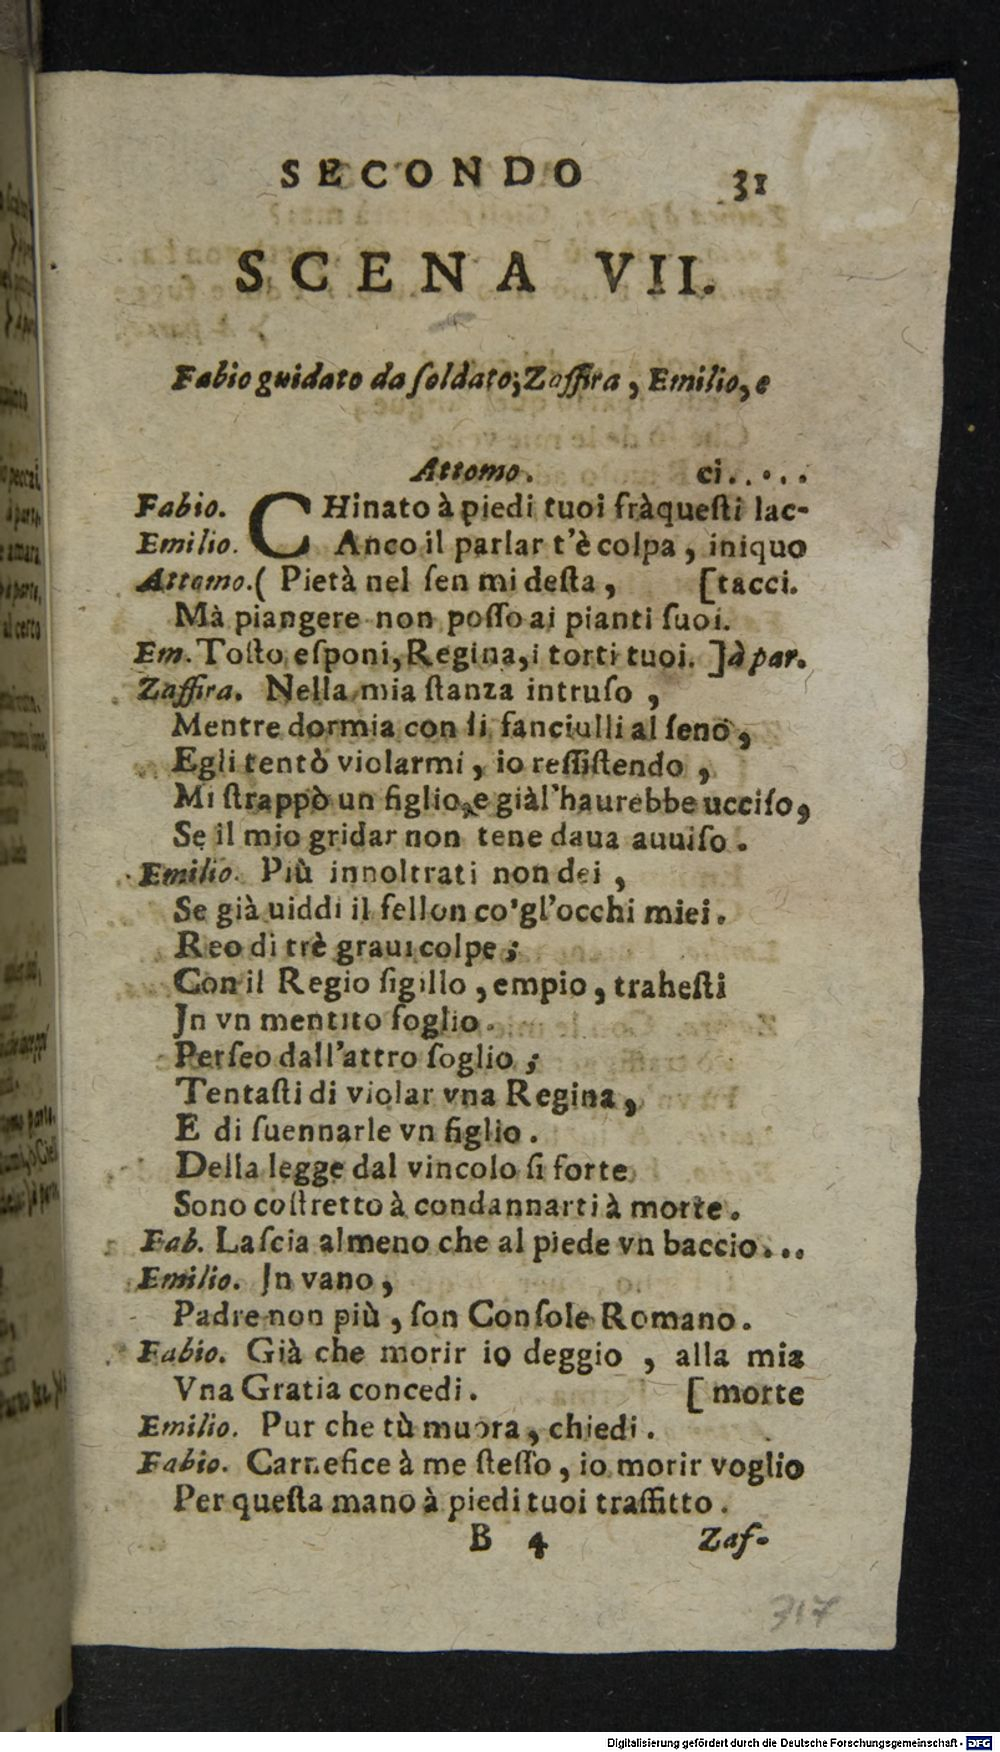 SECONDO 31
SCENA VII.
Fabio guidato da ſoldato; Zaffira, Emilio, e
Attomo. ci.....
Fabio. CHinato à piedi tuoi fràqueſti lac-
Emilio. Anco il parlar t'è colpa, iniquo
Attomo. ( Pietà nel ſen mi deſta, [tacci.
Mà piangere non poſſo ai pianti ſuoi.
Em. Toſto eſponi, Regina, i torti tuoi. ]à par.
Zaffira. Nella mia ſtanza intruſo,
Mentre dormia con li fanciulli al ſeno,
Egli tentò violarmi, io reſſiſtendo,
Mi ſtrappò un figlio, e giàl'haurebbe ucciſo,
Se il mio gridar non tene daua auuiſo.
Emilio. Più innoltrati non dei,
Se già uiddi il fellon co'gl'occhi miei.
Reo di trè graui colpe;
Con il Regio ſigillo, empio, traheſti
Jn vn mentito foglio.
Perſeo dall'attro ſoglio;
Tentaſti di violar vna Regina,
E di ſuennarle vn figlio.
Della legge dal vincolo ſi forte
Sono coſtretto à condannarti à morte.
Fab. Laſcia almeno che al piede vn baccio...
Emilio. Jn vano,
Padre non più, ſon Conſole Romano.
Fabio. Già che morir io deggio, alla mia
Vna Gratia concedi. [ morte
Emilio. Pur che tù muora, chiedi.
Fabio. Carnefice à me ſteſſo, io morir voglio
Per queſta mano à piedi tuoi traffitto.
B 4 Zaf-
317
Digitalisierung gefördert durch die Deutsche Forschungsgemeinschaft - DFG